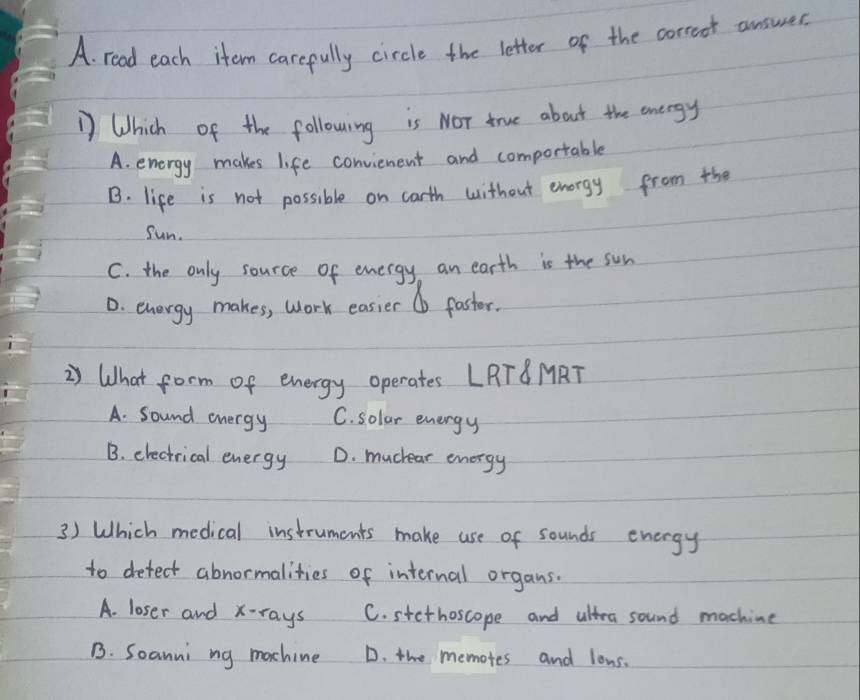 A. read each item carefully circle the letter of the correct answer.
1) Which of the following is NOT true about the energy
A. energy makes life convienent and comportable
B. life is not possible on earth without energy from the
sun.
C. the only source of energy an earth is the sun
D. energy makes, work easier & faster.
2) What form of energy operates LRT & MRT
A. Sound energy C. solar energy
B. electrical energy D. muclear energy
3) Which medical instruments make use of sounds energy
to detect abnormalities of internal organs.
A. loser and x-rays C. stethoscope and ultra sound machine
B. Soanni ng machine D. the memotes and lens.